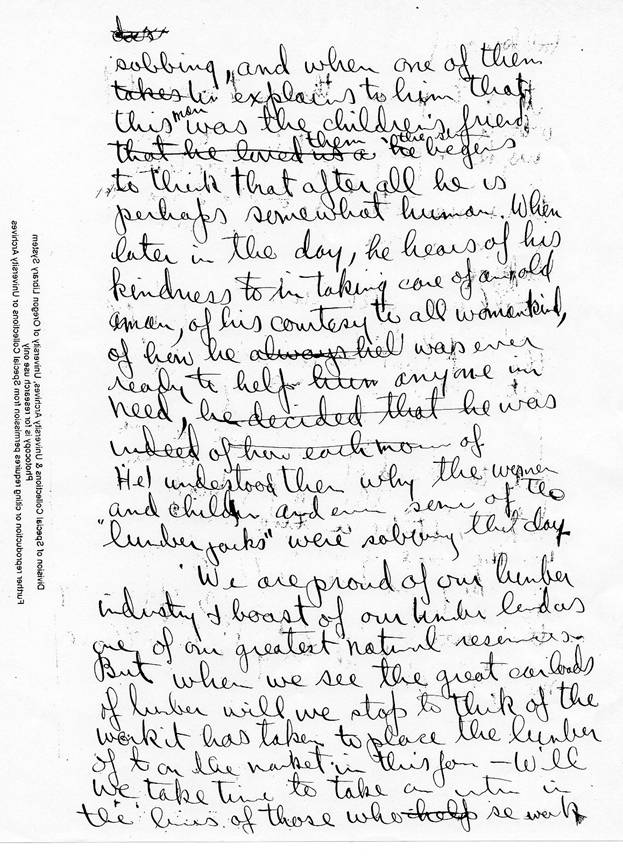 sobbing, and when one of them
takes explains to him that
this man was the children's friend
that he loved them he begins
to think that after all he is
perhaps somewhat human. When
later in the day, he hears of his
kindness to in taking care of an old
man, of his courtesy to all womankind,
of how he always was ever
ready to help him anyone in
need, he decided that he was
indeed of how each of
He understood then why the women
and children and even some of the
"lumber jacks" were sobbing that day
We are proud of our lumber
industry & boast of our timber lands as
one of our greatest natural resources
But when we see the great carloads
of lumber will we stop to think of the
work it has taken to place the lumber
on the market in this form - Will
we take time to take an in
the lives of those who help work
Division of Special Collections & University Archives, University of Oregon Library System
Photocopy is for research use only
Further reproduction or citing requires permission from Special Collections or University Archives